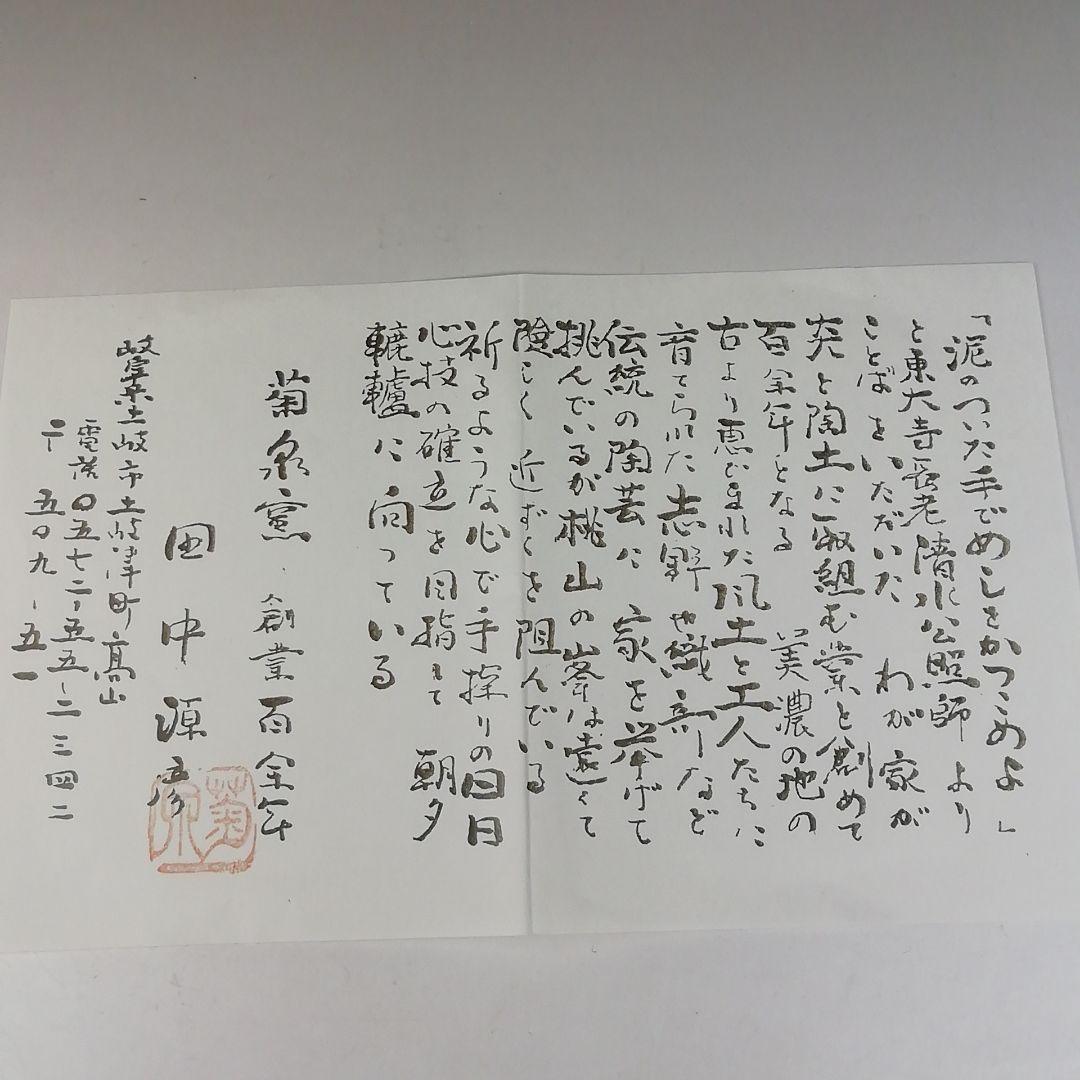 「泥のついた手でめしをかつこめよ」
と東大寺長老清水公照師より
ことばをいただいた わが家が
炎と陶土に取組む業を創めて
百余年となる 美濃の地の
古より恵まれた風土と工人たちに
育てられた志野や織部など
伝統の陶芸に 家を挙げて
挑んでいるが桃山の峯は遠くて
険しく 近ずくを阻んでいる
祈るような心で手探りの日日
心技の確立を目指して 朝夕
轆轤に向っている
菊泉窯・創業百余年
田中源彦
菊泉
岐阜県土岐市土岐津町高山
電話〇五七二-五五-二三四二
〒五〇九-五一